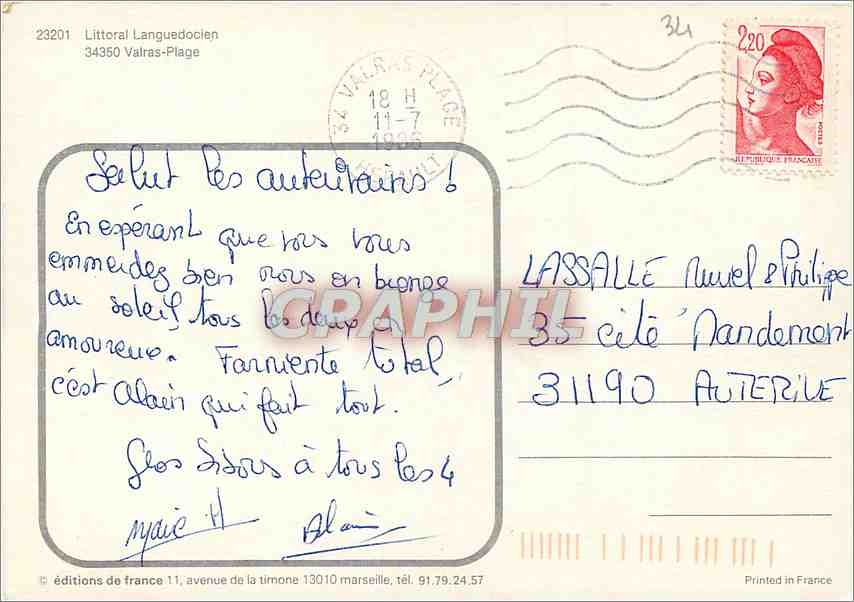 23201 Littoral Languedocien
34350 Valras-Plage
34
2,20
POSTES
REPUBLIQUE FRANÇAISE
34 VALRAS-PLAGE
18 H
11-7
1986
HERAULT
Salut les auterivains !
En espérant que vous vous
emmerdez bien nous on bronze
au soleil, tous les deux en
amoureux. Farniente total
c'est Alain qui fait tout.
Gros bisous à tous les 4
Marie H Alain
LASSALLE Muriel & Philippe
35 cité Mandement
31190 AUTERIVE
GRAPHIL
© éditions de france 11, avenue de la timone 13010 marseille, tél. 91.79.24.57
Printed in France